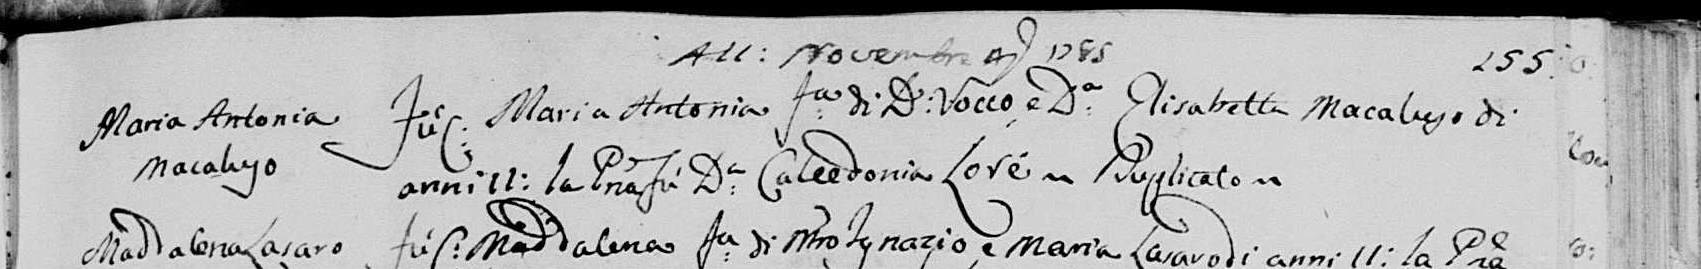 All: Novembre 1785 255
Maria Antonia Macaluso
Fù C: Maria Antonia f.a di D: Vocco, e D.a Elisabetta Macaluso di
anni 11: la Pña fù D.a Caleedonia Loré
Maddalena Lasaro
fù C: Maddalena f.a di Mro Ignazio, e Maria Lasaro di anni 11: la Pña